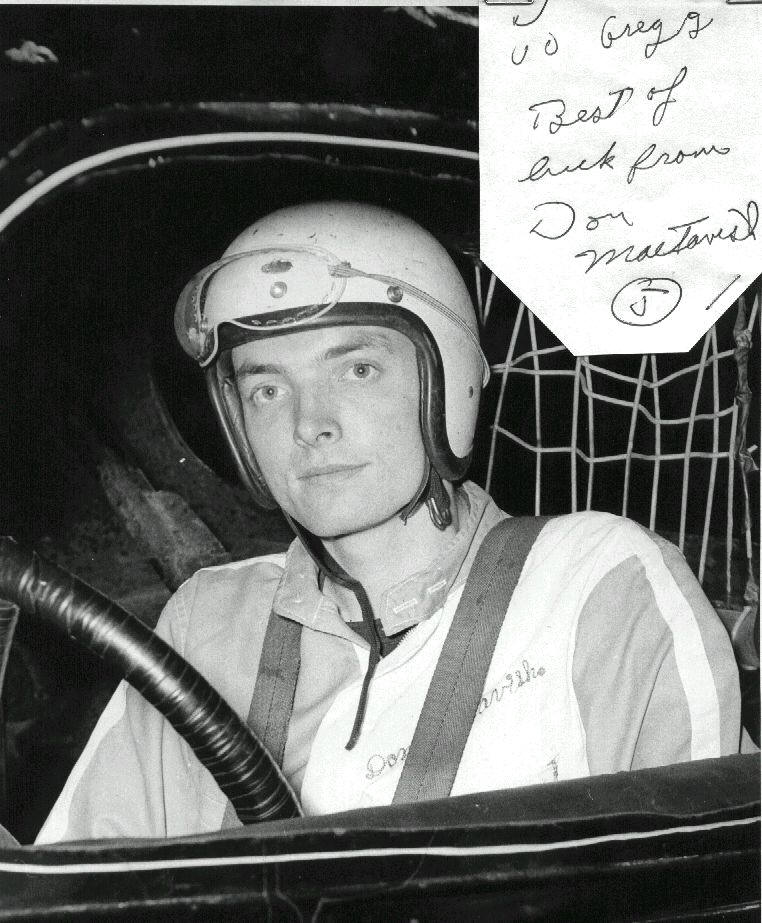 To Gregg
Best of
luck from
Don
MacTavish
5
Don avish